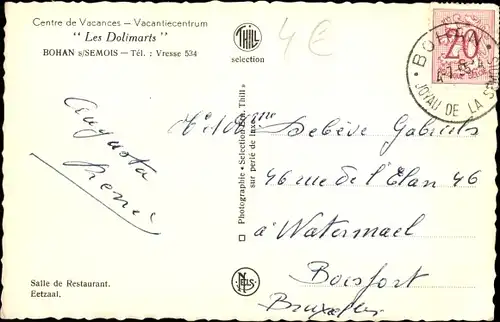 Centre de Vacances — Vacantiecentrum
" Les Dolimarts "
BOHAN s/SEMOIS — Tél. : Vresse 534
THILL
selection
4€
20
BOHAN
JOYAU DE LA SEMOIS
Augusta
René
Photographie • Selection Ern. Thill •
sur perlé de luxe.
Debève Gabriels
46 rue de l'Elan 46
à Watermael
Boisfort
Bruxelles
Salle de Restaurant.
Eetzaal.
NELS